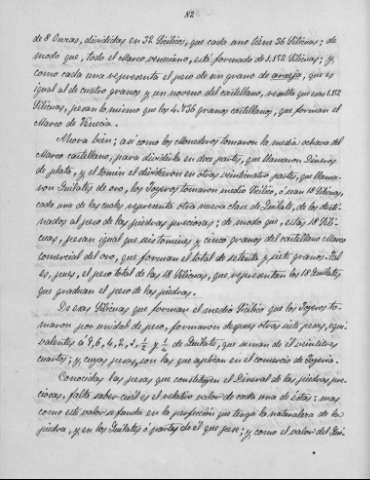 82
de 8 Onzas, divididas en 32 Silicos, que cada uno tiene 36 Siticuas; de
modo que, todo el Marco veneciano, está formado de 1.152 Siticuas; y,
como cada una representa el peso de un grano de arroyo, que es
igual al de cuatro granos y un noveno del castellano, resulta que las 1.152
pesan lo mismo que los 4.736 granos castellanos, que forman el
Marco de Venecia.
Ahora bien; así como los Monederos tomaron la media ochava del
Marco castellano, para dividirla en dos partes, que llamaron Dineros
de plata, y el tomin el dividieron en otras veinticuatro partes, que llama-
ron Quilates de oro, los Joyeros tomaron medio o sean 18
cada una de las cuales representa otra nueva clase de Quilate, de los desti-
nados al peso de las piedras preciosas; de modo que, estas 18
pesan igual que seis tomines y cinco granos del castellano Marco
comercial del oro, que forman el total de setenta y siete granos. Tal
es, pues, el peso total de las 18 que representan los 18 Quilates
que gradúan el peso de las piedras.
De esas que forman el medio que los Joyeros to-
maron por unidad de peso, formaron después otras siete pesas, equi-
valentes á 8, 6, 4, 2, 1, ½ y ¼ de Quilate, que suman de el veintiun
cuartos; y, cuyas pesas, son las que aplican en el comercio de Joyería.
Conocidas las pesas que constituyen el Dineral de las piedras pre-
ciosas, falta saber cual es el relativo valor de cada una de éstas: mas
como este valor se funda en la perfección que tenga la naturaleza de la
piedra, y en los Quilates ó partes de él que pese; y como el valor del Qui-